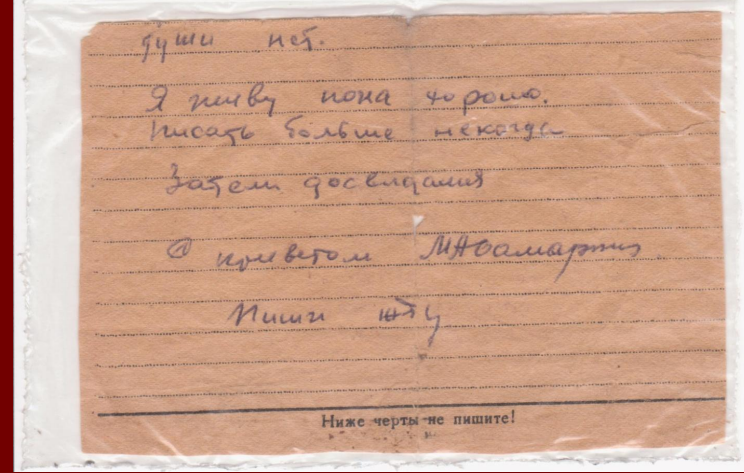 нет.
Я живу пока хорошо.
Писать больше некогда
Затем досвидания
С приветом
Пиши жду
Ниже черты не пишите!